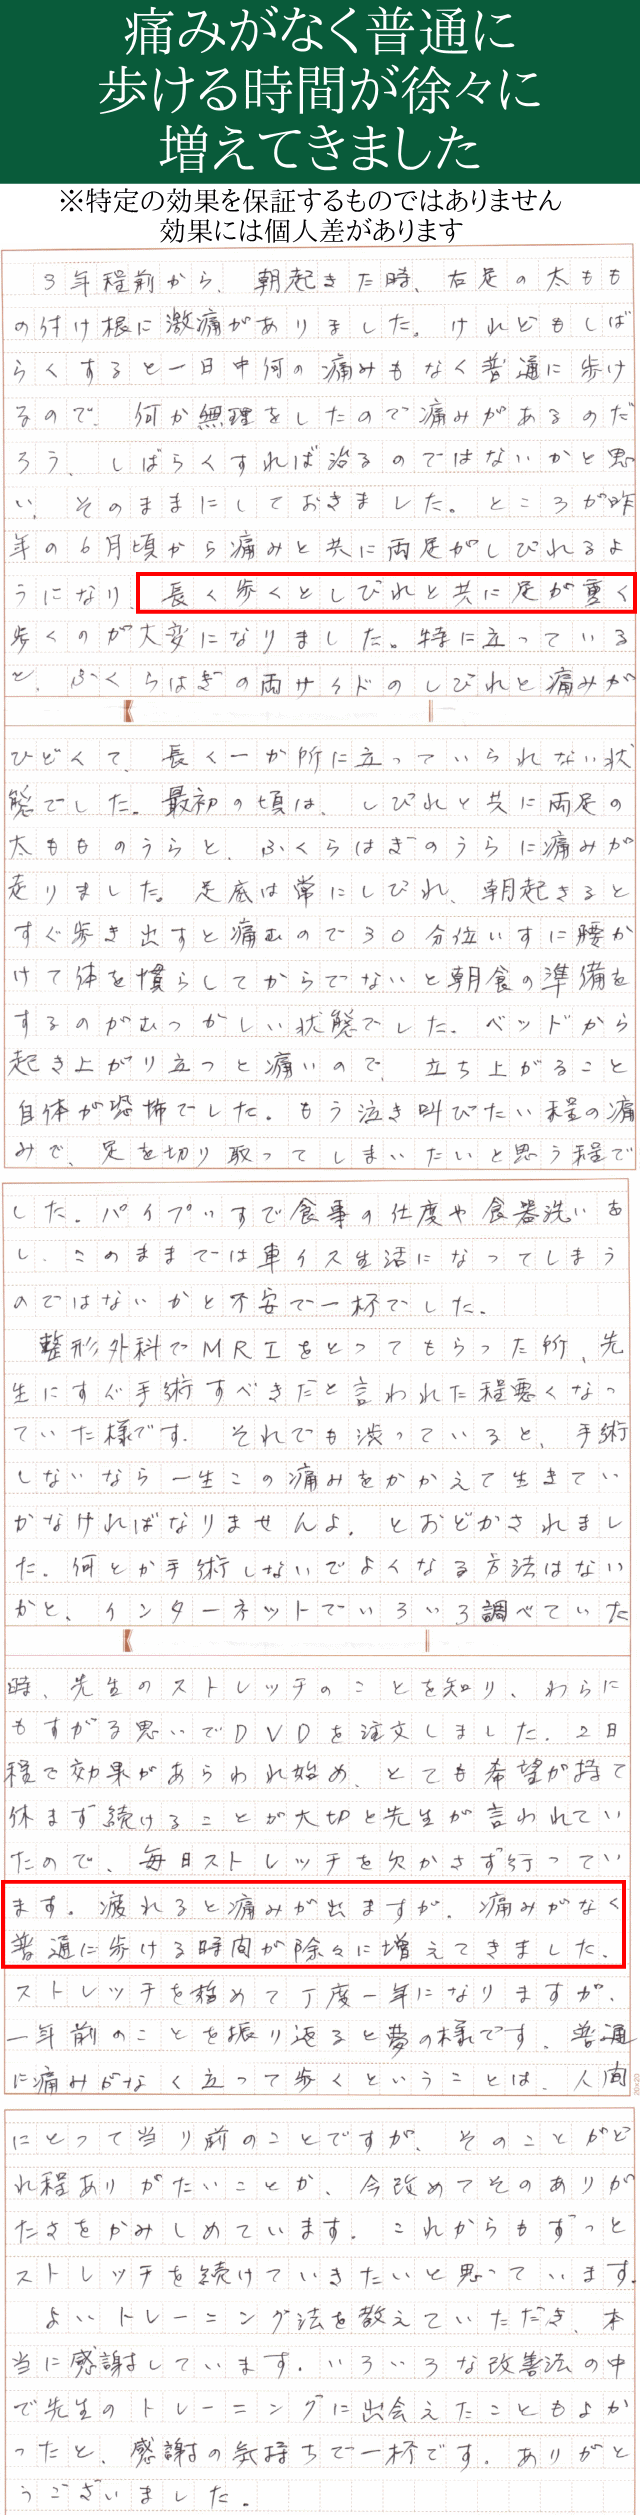 痛みがなく普通に
歩ける時間が徐々に
増えてきました
※特定の効果を保証するものではありません
効果には個人差があります
3年程前から、朝起きた時、右足の太もも
の付け根に激痛がありました。けれどもしば
らくすると一日中何の痛みもなく普通に歩け
るので、何か無理をしたので痛みがあるのだ
ろう、しばらくすれば治るのではないかと思
い、そのままにしておきました。ところが昨
年の6月頃から痛みと共に両足がしびれるよ
うになり、長く歩くとしびれと共に足が重く
歩くのが大変になりました。特に立っている
と、ふくらはぎの両サイドのしびれと痛みが
ひどくて、長く一か所に立っていられない状
態でした。最初の頃は、しびれと共に両足の
太もものうらと、ふくらはぎのうらに痛みが
走りました。足底は常にしびれ、朝起きると
すぐ歩き出すと痛むので30分位いすに腰か
けて体を慣らしてからでないと朝食の準備を
するのがむつかしい状態でした。ベッドから
起き上がり立つと痛いので、立ち上がること
自体が恐怖でした。もう泣き叫びたい程の痛
みで、足を切り取ってしまいたいと思う程で
した。パイプいすで食事の仕度や食器洗いを
し、このままでは車イス生活になってしまう
のではないかと不安で一杯でした。
整形外科でMRIをとってもらった所、先
生にすぐ手術すべきだと言われた程悪くなっ
ていた様です。それでも渋っていると、手術
しないなら一生この痛みをかかえて生きてい
かなければなりませんよ。とおどかされまし
た。何とか手術しないでよくなる方法はない
かと、インターネットでいろいろ調べていた
時、先生のストレッチのことを知り、わらに
もすがる思いでDVDを注文しました。2日
程で効果があらわれ始め、とても希望が持て
休まず続けることが大切と先生が言われてい
たので、毎日ストレッチを欠かさず行ってい
ます。疲れると痛みが出ますが、痛みがなく
普通に歩ける時間が除々に増えてきました。
ストレッチを始めて丁度一年になりますが、
一年前のことを振り返ると夢の様です。普通
に痛みがなく立って歩くということは、人間
20×20
にとって当り前のことですが、そのことがど
れ程ありがたいことか、今改めてそのありが
たさをかみしめています。これからもずっと
ストレッチを続けていきたいと思っています。
よいトレーニング法を教えていただき、本
当に感謝しています。いろいろな改善法の中
で先生のトレーニングに出会えたこともよか
ったと、感謝の気持ちで一杯です。ありがと
うございました。